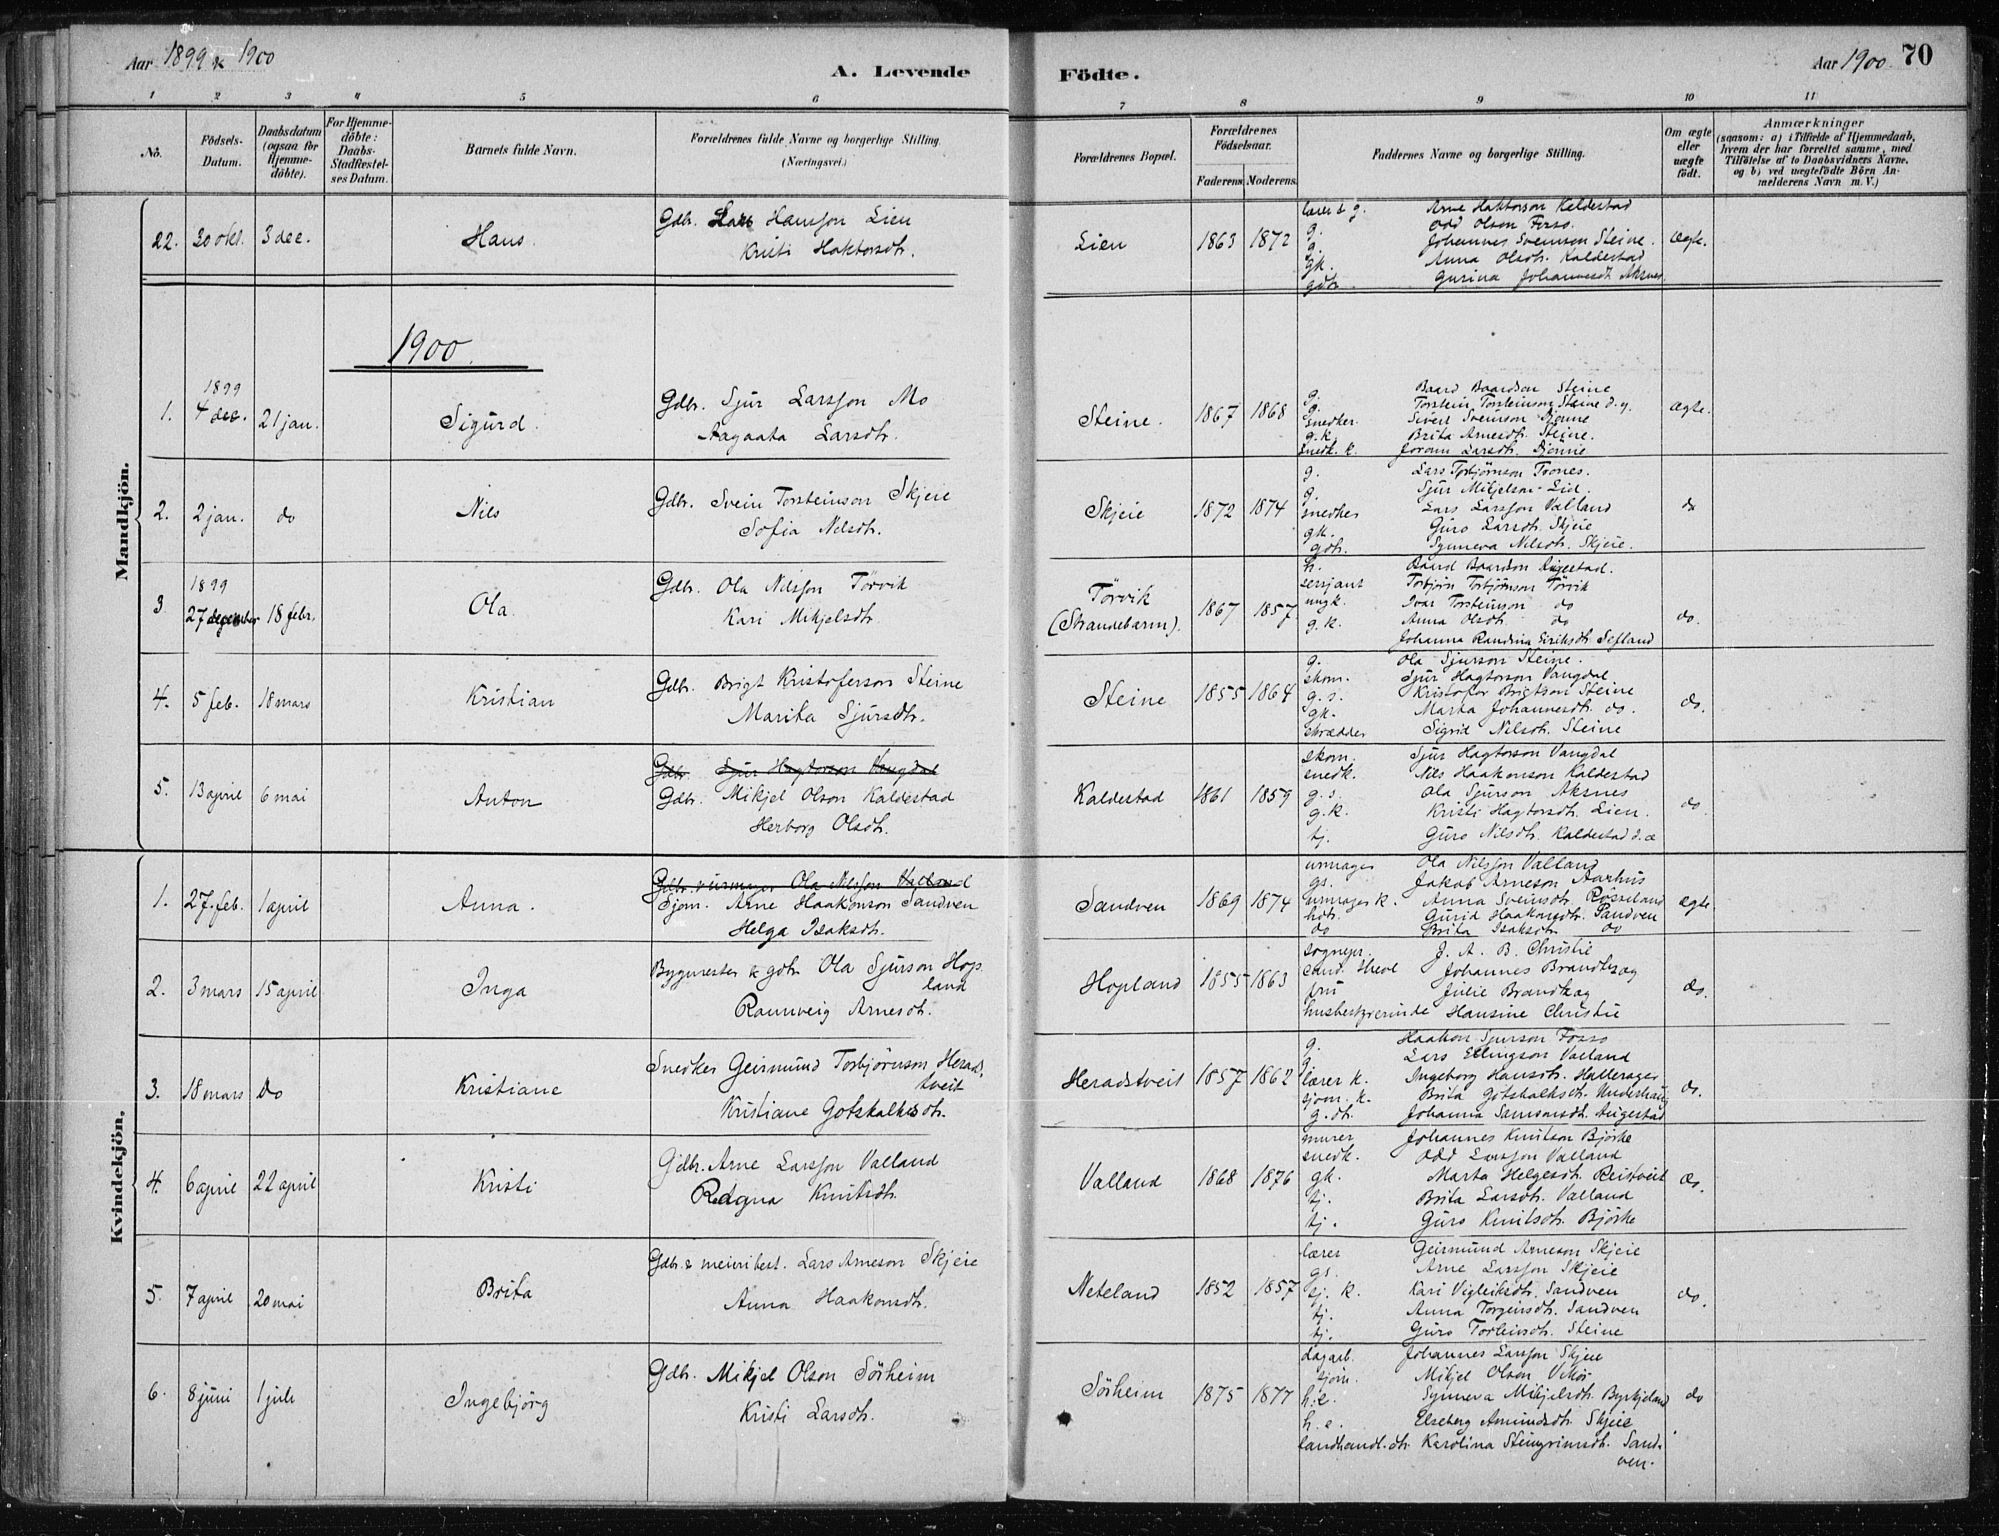 Aar 1899 & 1900
A. Levende
Födte.
Aar 1900. 70
1 2 3 4 5 6 7 8 9 10 11
No.
Födsels-Datum.
Daabsdatum (ogsaa for Hjemmedöbte).
For Hjemmedöbte: Daabs-Stadfæstelses Datum.
Barnets fulde Navn.
Forældrenes fulde Navne og borgerlige Stilling. (Næringsvei.)
Forældrenes Bopæl.
Forældrenes Födselsaar.
Faderens. Moderens.
Faddernes Navne og borgerlige Stilling.
Om ægte eller uægte födt.
Anmærkninger
(saasom: a) i Tilfælde af Hjemmedaab, hvem der har forrettet samme, med Tilföielse af to Daabsvidners Navne, og b) ved uægtefödte Börn Anmelderens Navn m. V.)
22. 30 okt. 3 dec. Hans.
Gdbr. Lars Hansson Lien
Kristi Haktorsdtr.
Lien 1863 1872
lærer & g. Arne Haktorson Kaldestad
g. Odd Olson Fosso.
g. Johannes Sveinson Steine.
gk. Anna Olsdtr. Kaldestad
gdtr. Gurina Johannesdt. Aksnes.
ægte.
1900.
Mandkjön.
1. 1899 4 dec. 21 jan. Sigurd.
Gdbr. Sjur Larsson Mo
Aagaata Larsdtr.
Steine. 1867 1868
g. Baard Baardson Steine
g. Torstein Torsteinson Steine d.y.
snedker. Sivert Sveinson Bjönne
g.k. Brita Arnesdtr. Steine.
snedk. k. Joronn Larsdtr. Bjönne
ægte.
2. 2 jan. do Nils
Gdbr. Svein Torsteinson Skjeie
Sofia Nilsdtr.
Skjeie 1872 1874
g. Lars Torbjörnson Tvones.
g. Sjur Mikjelson Lid.
snedker Lars Larsson Valland
gk. Guro Larsdtr. Skjeie
gdtr. Synneva Nilsdtr. Skjeie.
do
3. 1899 27 december 18 febr. Ola
Gdbr. Ola Nilsson Törvik
Kari Mikjelsdtr.
Törvik (Strandebarm). 1867 1857
h. Baard Baardson Augestad.
sersjant Torbjörn Torbjörnson Törvik
ungk. Ivar Torsteinson do
g.k. Anna Olsdtr. do
Johanna Randina Eiriksdtr. Tefland
do.
4. 5 feb. 18 mars Kristian
Gdbr. Brigt Kristoferson Steine
Marita Sjursdtr.
Steine 1855 1864
g. Ola Sjurson Steine.
skom. Sjur Hagtorson Vangdal
g.s. Kristofer Brigtson Steine
gk. Marta Johannesdtr. do.
skrædder Sigrid Nilsdtr. Steine
do.
5. 13 april 6 mai Anton
Gdbr. Sjur Hagtorson Vangdal
Gdbr. Mikjel Olson Kaldestad
Herborg Olsdtr.
Kaldestad 1861 1859
skom. Sjur Hagtorson Vangdal
snedk. Nils Haakonson Kaldestad
g.s. Ola Sjurson Aksnes
g.k. Kristi Hagtorsdtr. Lien.
tj. Guro Nilsdtr. Kaldestad d.æ
do.
Kvindekjön.
1. 27. feb. 1 april Anna.
Gdbr. & urmager Ola Nilsson Valland
Sjöm. Arne Haakonson Sandven
Helga Isaksdtr.
Sandven 1869 1874
urmager Ola Nilsson Valland
gs. Jakob Arneson Aarhus
urmager k. Anna Sveinsdtr. Rosseland
hdtr. Gurid Haakonsdtr. Sandven
do Brita Isaksdtr do
ægte.
2. 3 mars 15 april Inga
Bygmester & gdbr Ola Sjurson Hopland
Rannveig Arnesdtr.
Hopland 1855 1863
sognepr. J. A. B. Christie
cand. theol Johannes Brandtzæg
fru Julie Brandtzæg
husbestyrerinde Hansine Christie
do.
3. 18 mars do Kristiane
Snedker Geirmund Torbjörnson Heradstveit
Kristiane Gotskalksdtr.
Heradstveit 1857 1862
g. Haakon Sjurson Fosso
g. Lars Ellingson Valland
lærer k. Ingeborg Hansdtr. Halleraker
sjom. k. Brita Gotskalksdtr. Underhaug
g. dtr. Johanna Samsonsdtr. Augestad
do.
4. 6 april 22 april Kristi
Gdbr. Arne Larsson Valland
Ragna Knutsdtr.
Valland 1868 1876
murer Johannes Knutson Björke
snedk. Odd Larsson Valland
gk. Marta Helgesdtr. Reistveit
tj. Brita Larsdtr. Valland
tj. Guro Knutsdtr. Björke
do.
5. 7 april 20 mai Brita
Gdbr. & meieribest. Lars Arneson Skjeie
Anna Haakonsdtr.
Neteland 1852 1857
lærer Geirmund Arneson Skjeie
gs. Arne Larsson Skjeie
sj. k. Kari Vigleiksdtr. Sandven
tj. Anna Torgeirsdtr. Sandven
tj. Guro Torleivsdtr. Steine
do.
6. 8 juni 1 juli Ingebjörg
Gdbr. Mikjel Olson Sörheim
Kristi Larsdtr.
Sörheim 1875 1877
dagarb. Johannes Larsson Skjeie
sjöm. Mikjel Olson Vikör
h.e. Synneva Mikjelsdtr. Byrkjeland
h.e. Elseberg Amundsdtr. Skjeie
landhandl. dtr. Karolina Steingrimsdtr. Sandven.
do